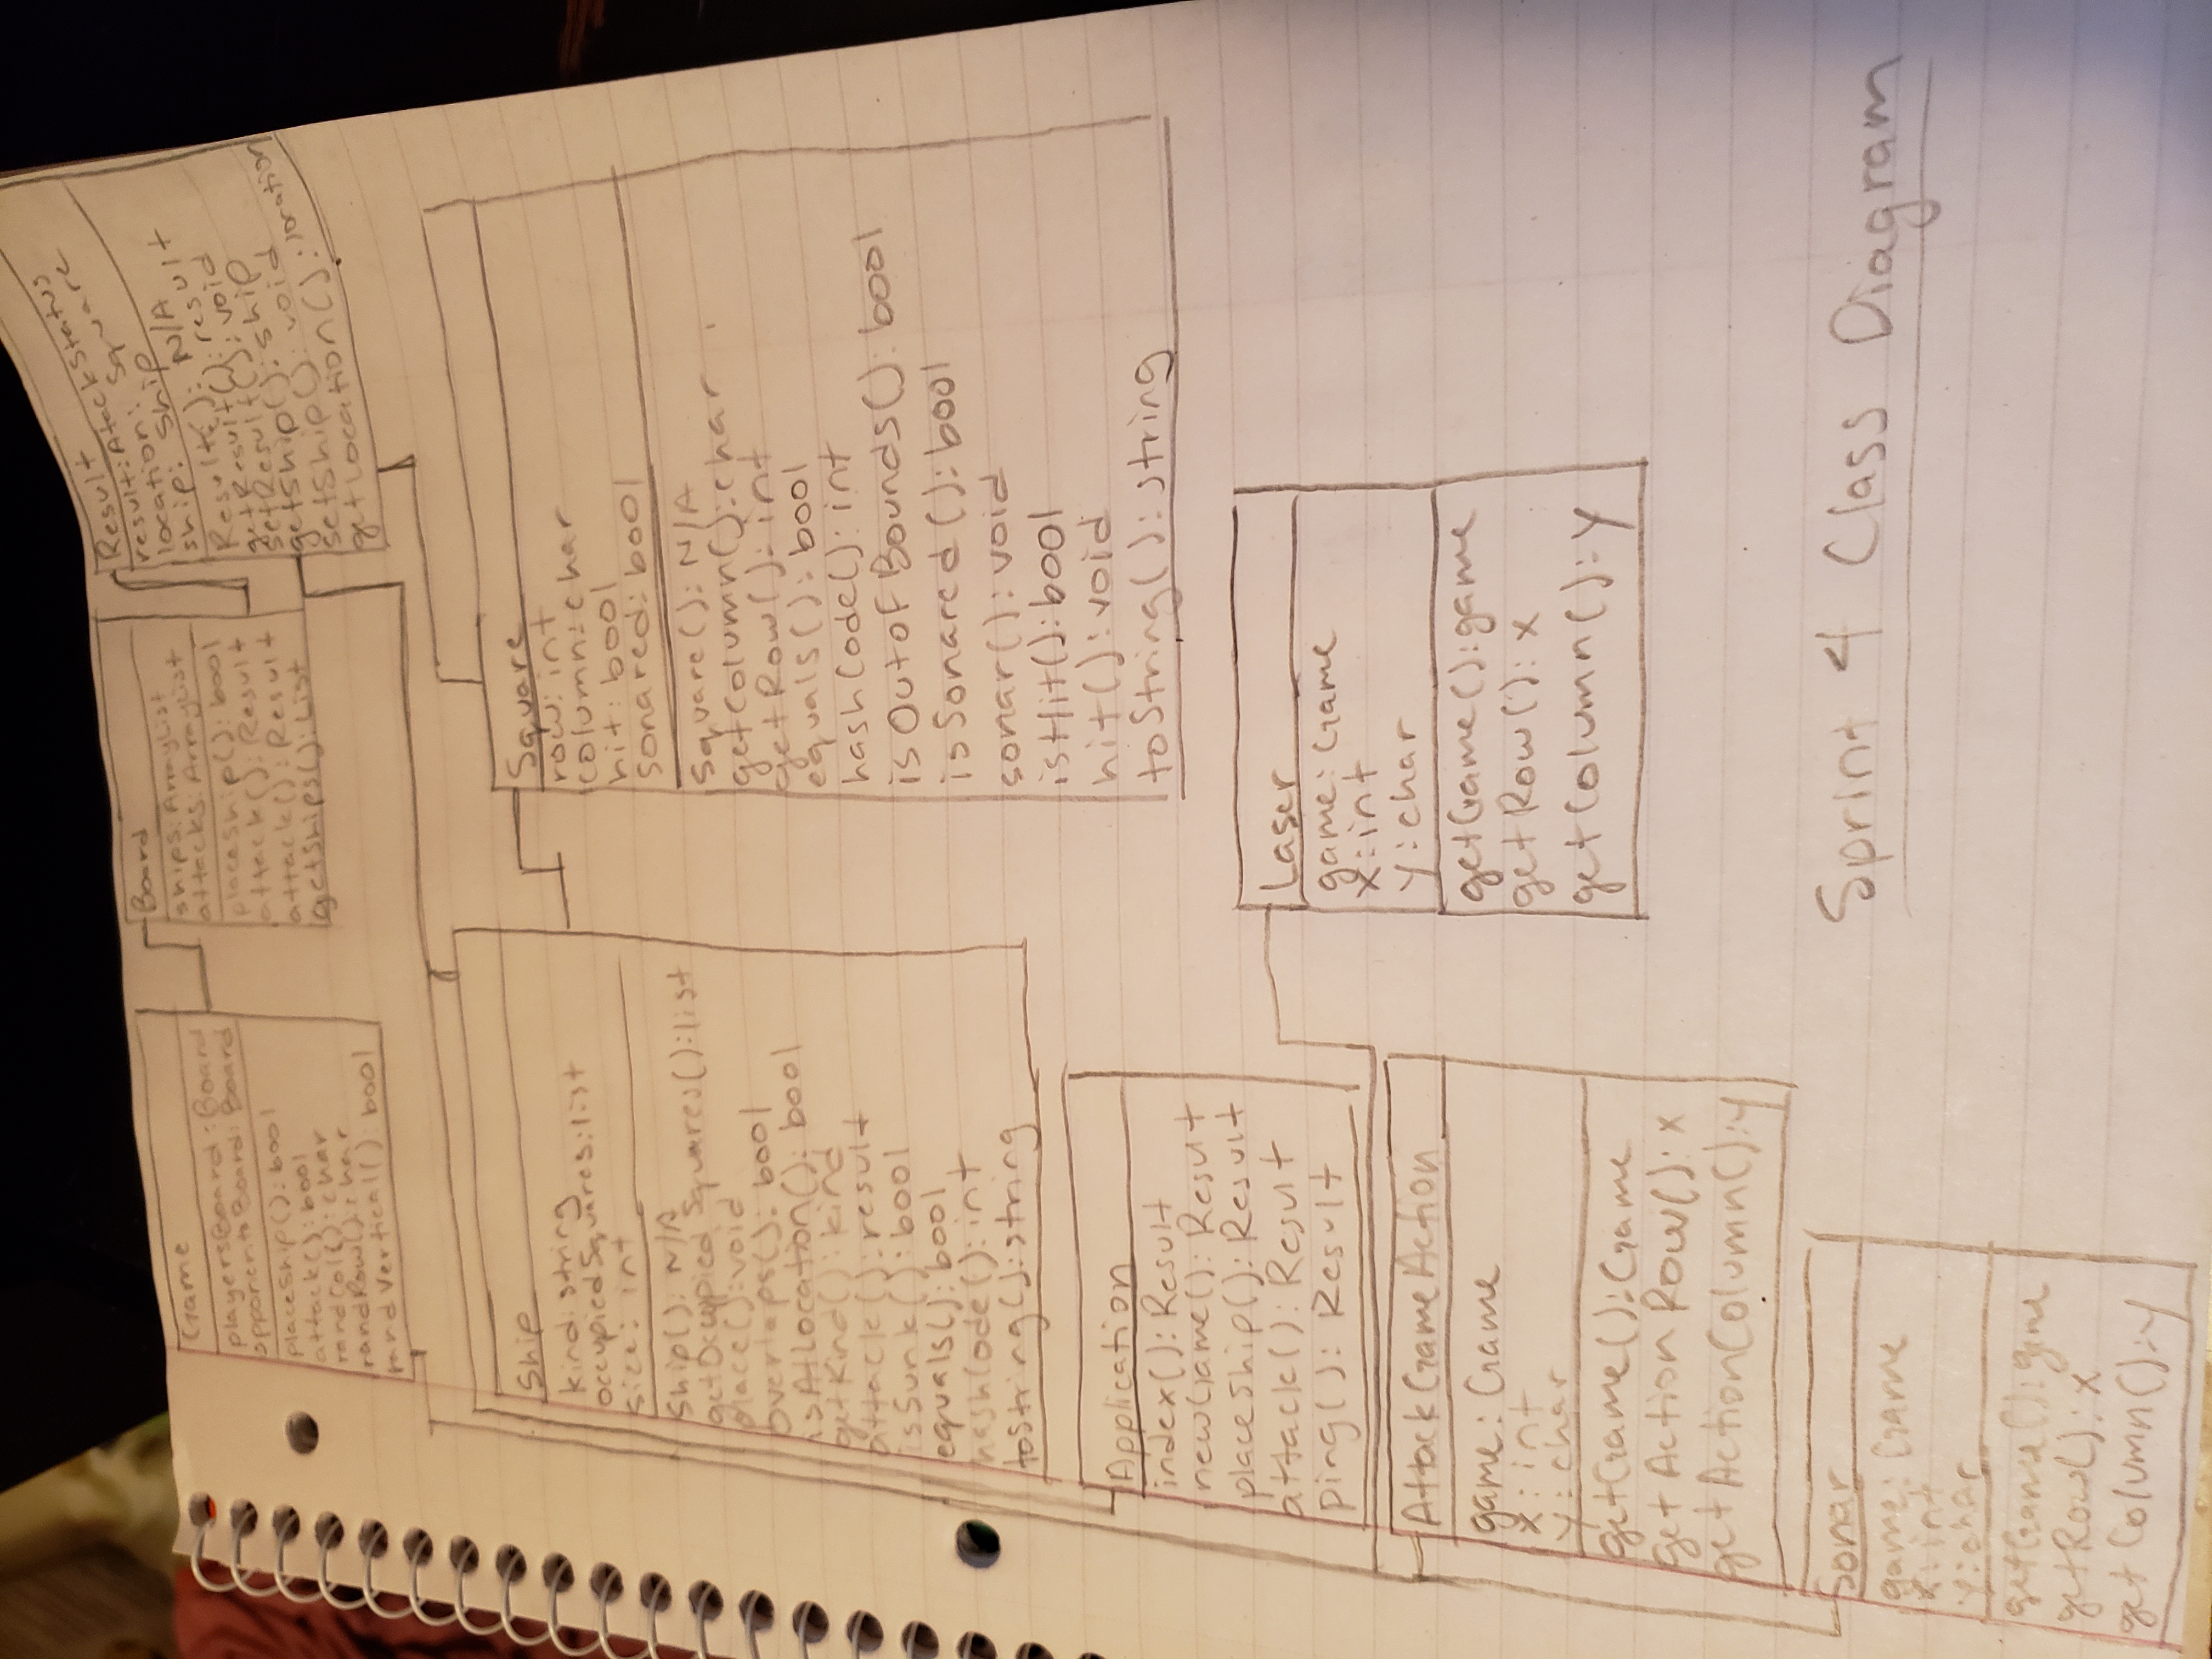 Game
playersBoard: Board
opponentsBoard: Board
placeShip(): bool
attack(): bool
randCol(): char
randRow(): char
randVertical(): bool
Board
ships: ArrayList
attacks: ArrayList
placeShip(): bool
attack(): Result
attack(): Result
getShips(): List
Result
result: AtackStatus
location: Square
ship: Ship
Result(): N/A
getResult(): result
setResult(): void
getShip(): ship
setShip(): void
getLocation(): location
Ship
kind: string
occupiedSquares: list
size: int
Ship(): N/A
getOccupiedSquares(): list
place(): void
overlaps(): bool
isAtLocation(): bool
getKind(): kind
attack(): result
isSunk(): bool
equals(): bool
hashCode(): int
toString(): string
Square
row: int
column: char
hit: bool
sonared: bool
Square(): N/A
getColumn(): char
getRow(): int
equals(): bool
hashCode(): int
isOutofBounds(): bool
isSonared(): bool
sonar(): void
isHit(): bool
hit(): void
toString(): string
Application
index(): Result
newGame(): Result
placeShip(): Result
attack(): Result
ping(): Result
Laser
game: Game
x: int
y: char
getGame(): game
getRow(): x
getColumn(): y
AttackGameAction
game: Game
x: int
y: char
getGame(): Game
getActionRow(): x
getActionColumn(): y
Sonar
game: Game
x: int
y: char
getGame(): game
getRow(): x
getColumn(): y
Sprint 4 Class Diagram